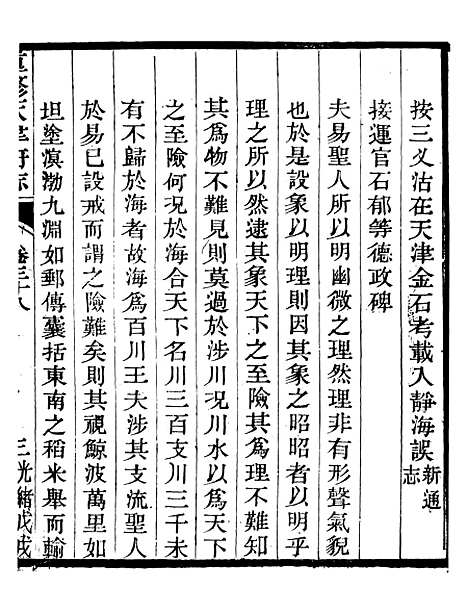 按三义沽在天津金石考載入靜海誤新通志
接運官石郁等德政碑
夫易聖人所以明幽微之理然理非有形聲氣貌
也於是設象以明理則因其象之昭昭者以明乎
理之所以然逮其象天下之至險其爲理不難知
其爲物不難見則莫過於涉川况川水以爲天下
之至險何况於海合天下名川三百支川三千未
有不歸於海者故海爲百川王夫涉其支流聖人
於易已設戒而謂之險難矣則其視鯨波萬里如
坦塗溟渤九淵如郵傳囊括東南之稻米舉而輸
重修天津府志
卷三十八
三光緒戊戌